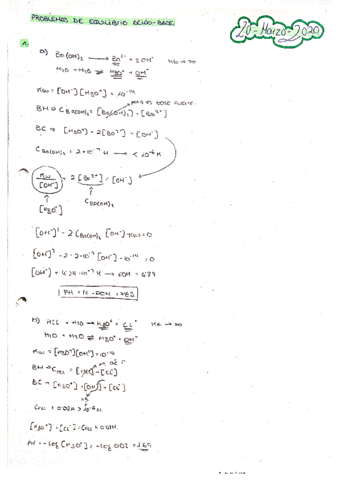 PROBLEMAS DE EQUILIBRIO ÁCIDO-BASE
20-Marzo-2020
a) Ba(OH)₂ → Ba²⁺ + 2OH⁻ Kb → ∞
H₂O + H₂O ⇌ H₃O⁺ + OH⁻
Kw = [OH⁻][H₃O⁺] = 10⁻¹⁴
BM → C Ba(OH)₂ = [Ba(OH)₂] + [Ba²⁺]
BC → [H₃O⁺] + 2[Ba²⁺] = [OH⁻]
C Ba(OH)₂ = 2·10⁻⁷ M → < 10⁻⁶ M
Kw/[OH⁻] + 2[Ba²⁺] = [OH⁻]
[H₃O⁺] C Ba(OH)₂
[OH⁻]² - 2 C Ba(OH)₂ [OH⁻] - Kw = 0
[OH⁻]² - 2·2·10⁻⁷ [OH⁻] - 10⁻¹⁴ = 0
b) HCl + H₂O → H₃O⁺ + Cl⁻ Ka → ∞
H₂O + H₂O ⇌ H₃O⁺ + OH⁻
Kw = [H₃O⁺][OH⁻] = 10⁻¹⁴
BM → C HCl = [HCl] + [Cl⁻]
BC → [H₃O⁺] = [OH⁻] + [Cl⁻]
C HCl = 0.02M > 10⁻⁶ M
[H₃O⁺] = [Cl⁻] = C HCl = 0.02M
pH = -log [H₃O⁺] = -log 0.02 = 1.69